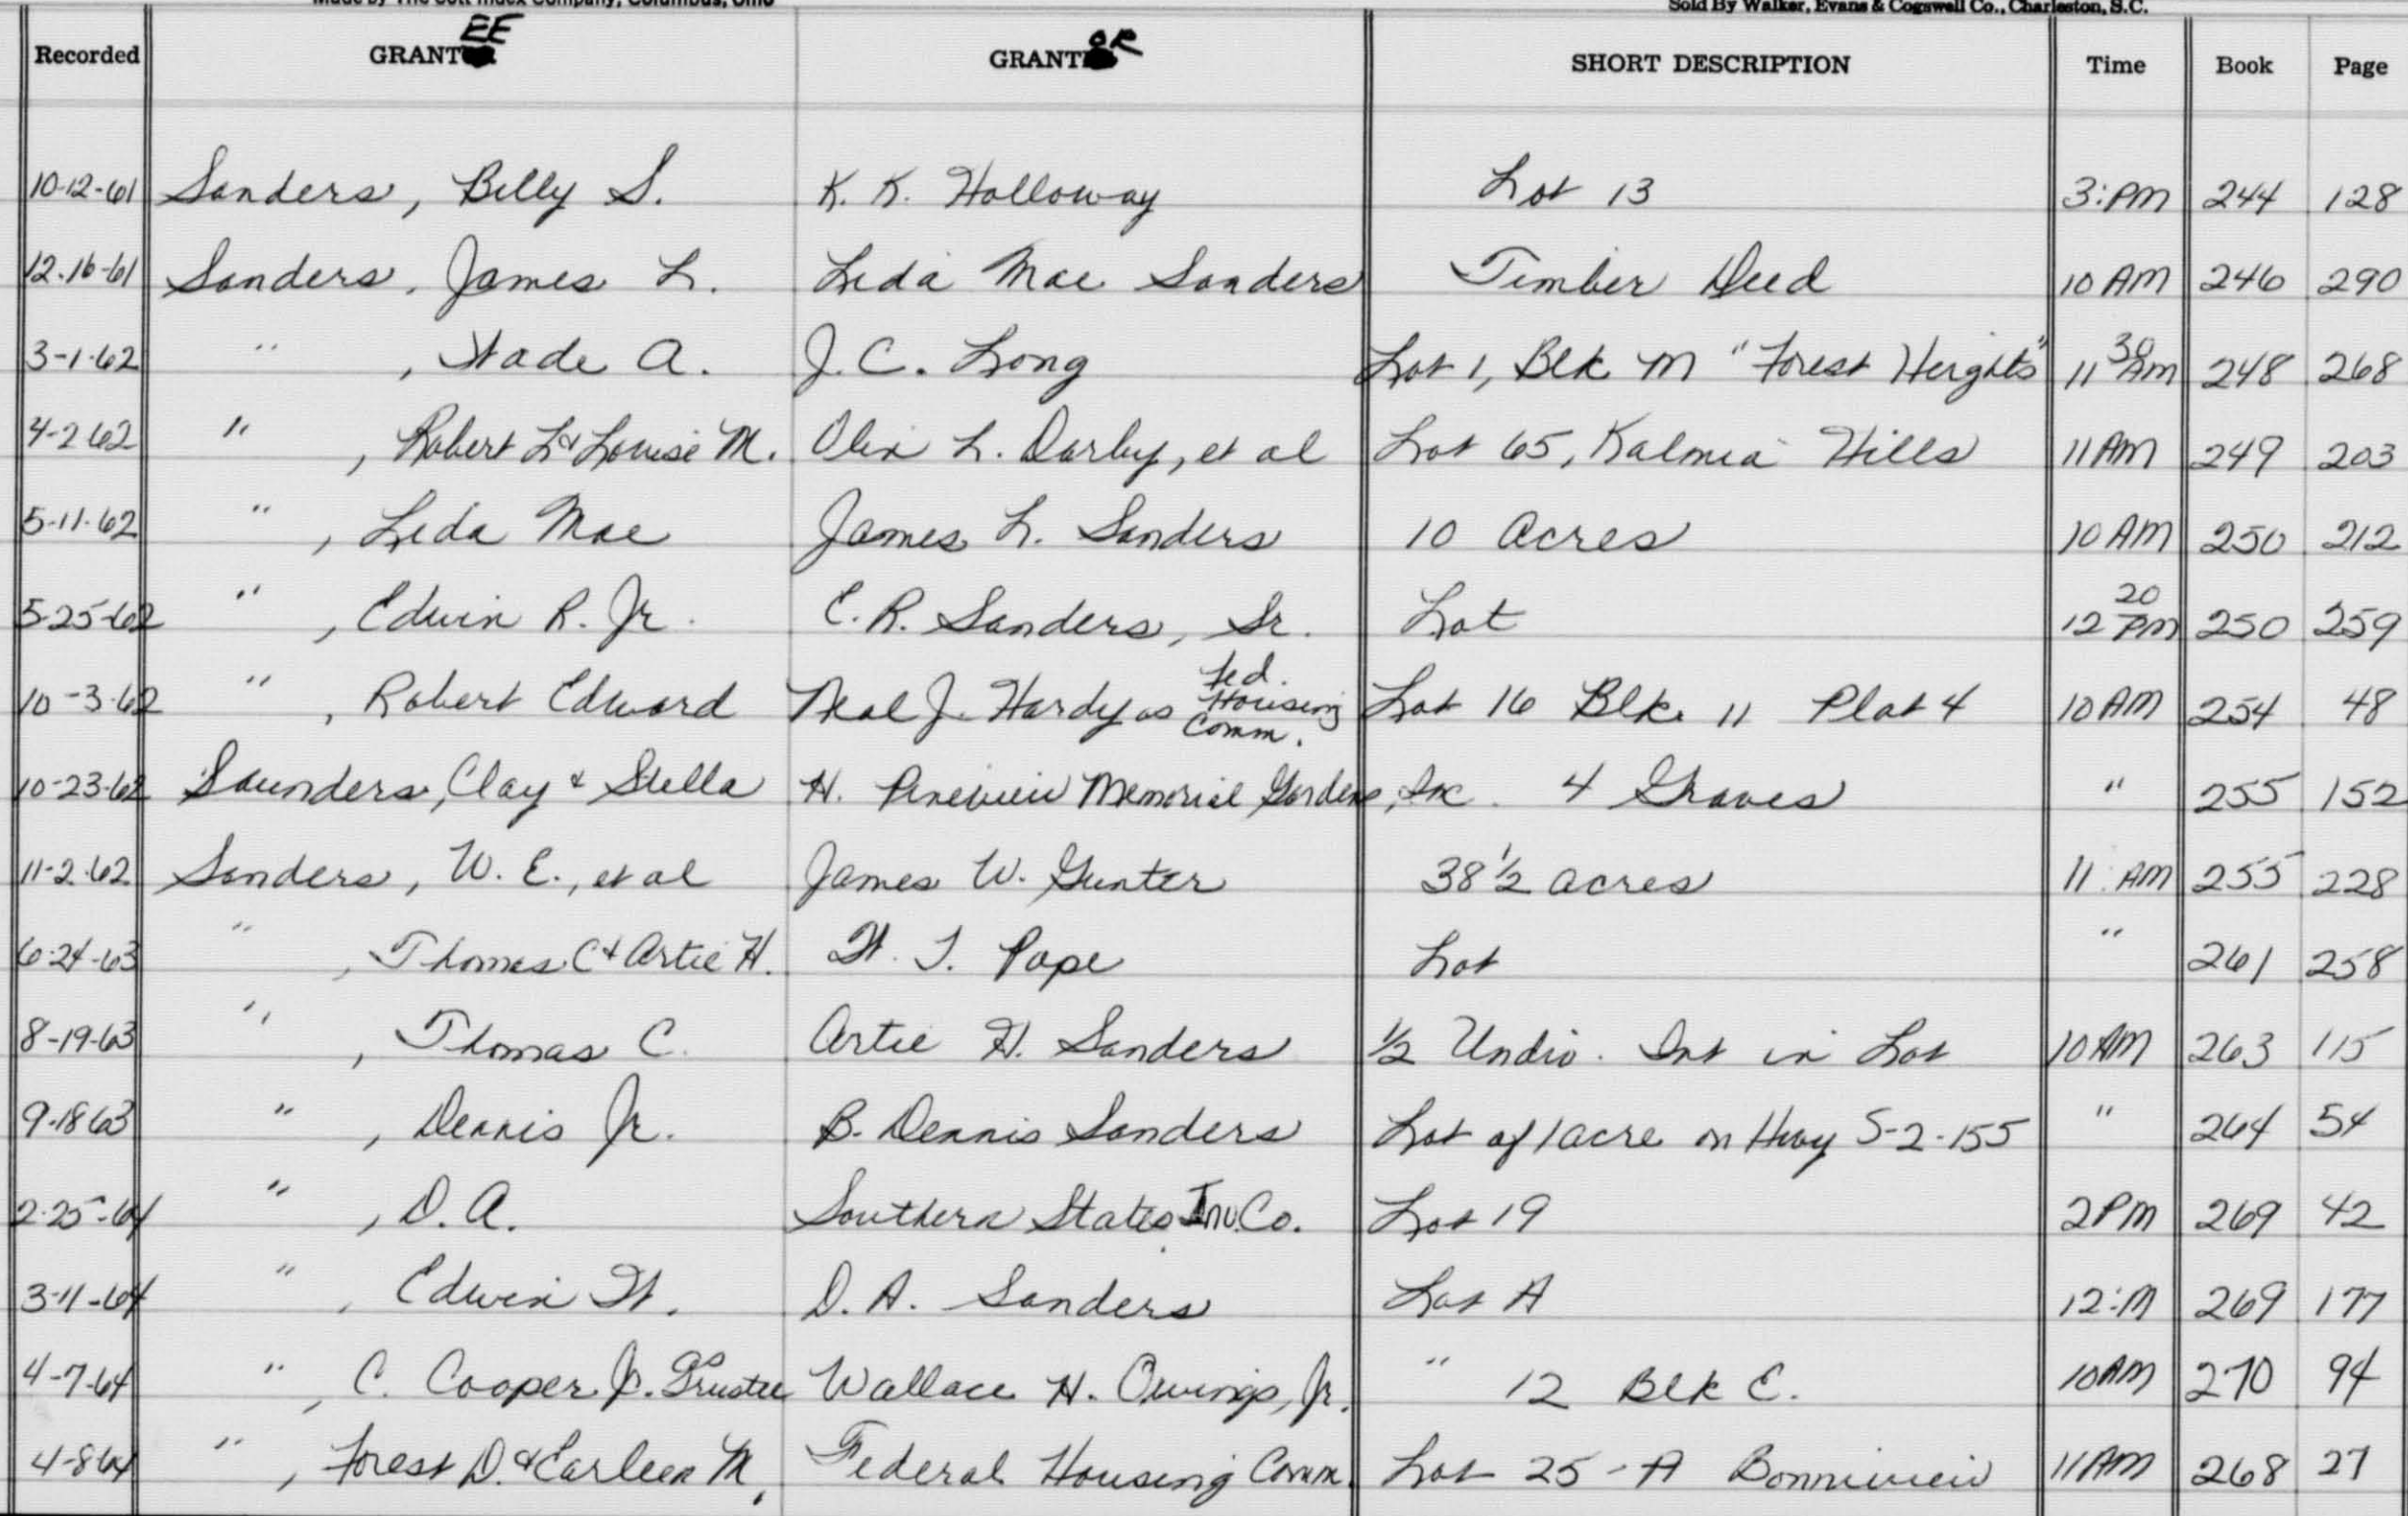 Made by The Cott Index Company, Columbus, Ohio
Sold By Walker, Evans & Cogswell Co., Charleston, S.C.
Recorded GRANTEE GRANTOR SHORT DESCRIPTION Time Book Page
10-12-61 Sanders, Billy S. K. K. Holloway Lot 13 3:PM 244 128
12-16-61 Sanders, James L. Leda Mae Sanders Timber Deed 10 AM 246 290
3-1-62 " , Wade A. J. C. Long Lot 1, Blk M "Forest Heights" 11 30 AM 248 268
4-2-62 " , Robert L & Louise M. Olin L. Darby, et al Lot 65, Kalmia Hills 11 AM 249 203
5-11-62 " , Leda Mae James L. Sanders 10 acres 10 AM 250 212
5-25-62 " , Edwin R. Jr. E. R. Sanders, Sr. Lot 12 20 PM 250 259
10-3-62 " , Robert Edward Neal J. Hardy as Fed. Housing Comm. Lot 16 Blk. 11 Plat 4 10 AM 254 48
10-23-62 Saunders, Clay & Stella H. Pineview Memorial Gardens, Inc. 4 Graves " 255 152
11-2-62 Sanders, W. E., et al James W. Gunter 38 1/2 acres 11 AM 255 228
6-24-63 " , Thomas C & Artie H. W. T. Pope Lot " 261 258
8-19-63 " , Thomas C. Artie H. Sanders 1/2 Undiv. Int in Lot 10 AM 263 115
9-18-63 " , Dennis Jr. B. Dennis Sanders Lot of 1 acre on Hwy S-2-155 " 264 54
2-25-64 " , D. A. Southern States Inv. Co. Lot 19 2 PM 269 42
3-11-64 " , Edwin W. D. A. Sanders Lot A 12:M 269 177
4-7-64 " , C. Cooper Jr. Trustee Wallace H. Owings, Jr. " 12 Blk C. 10 AM 270 94
4-8-64 " , Forest D. & Earleen M. Federal Housing Comm. Lot 25-A Bonnieview 11 AM 268 27